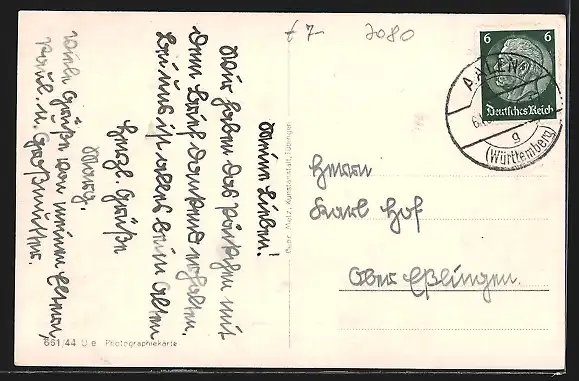 £ 7- 7080
6 6
Deutsches Reich
AALEN
g
(Württemberg)
Meine Lieben!
Wir haben das Päckchen mit
dem Brief dankend erhalten.
Bei uns ist alles beim Alten
Herzl. Grüße
Marg.
Viele Grüße von meinen Eltern,
Paul. u. Großmutter.
Gebr. Metz, Kunstanstalt, Tübingen
Herrn
Karl Hof
Ober Eßlingen.
661/44 U.e Photographiekarte